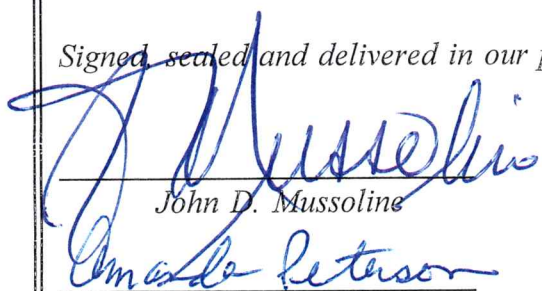 Signed, sealed and delivered in our p
J Mussolino
John D. Mussoline
Amanda Peterson